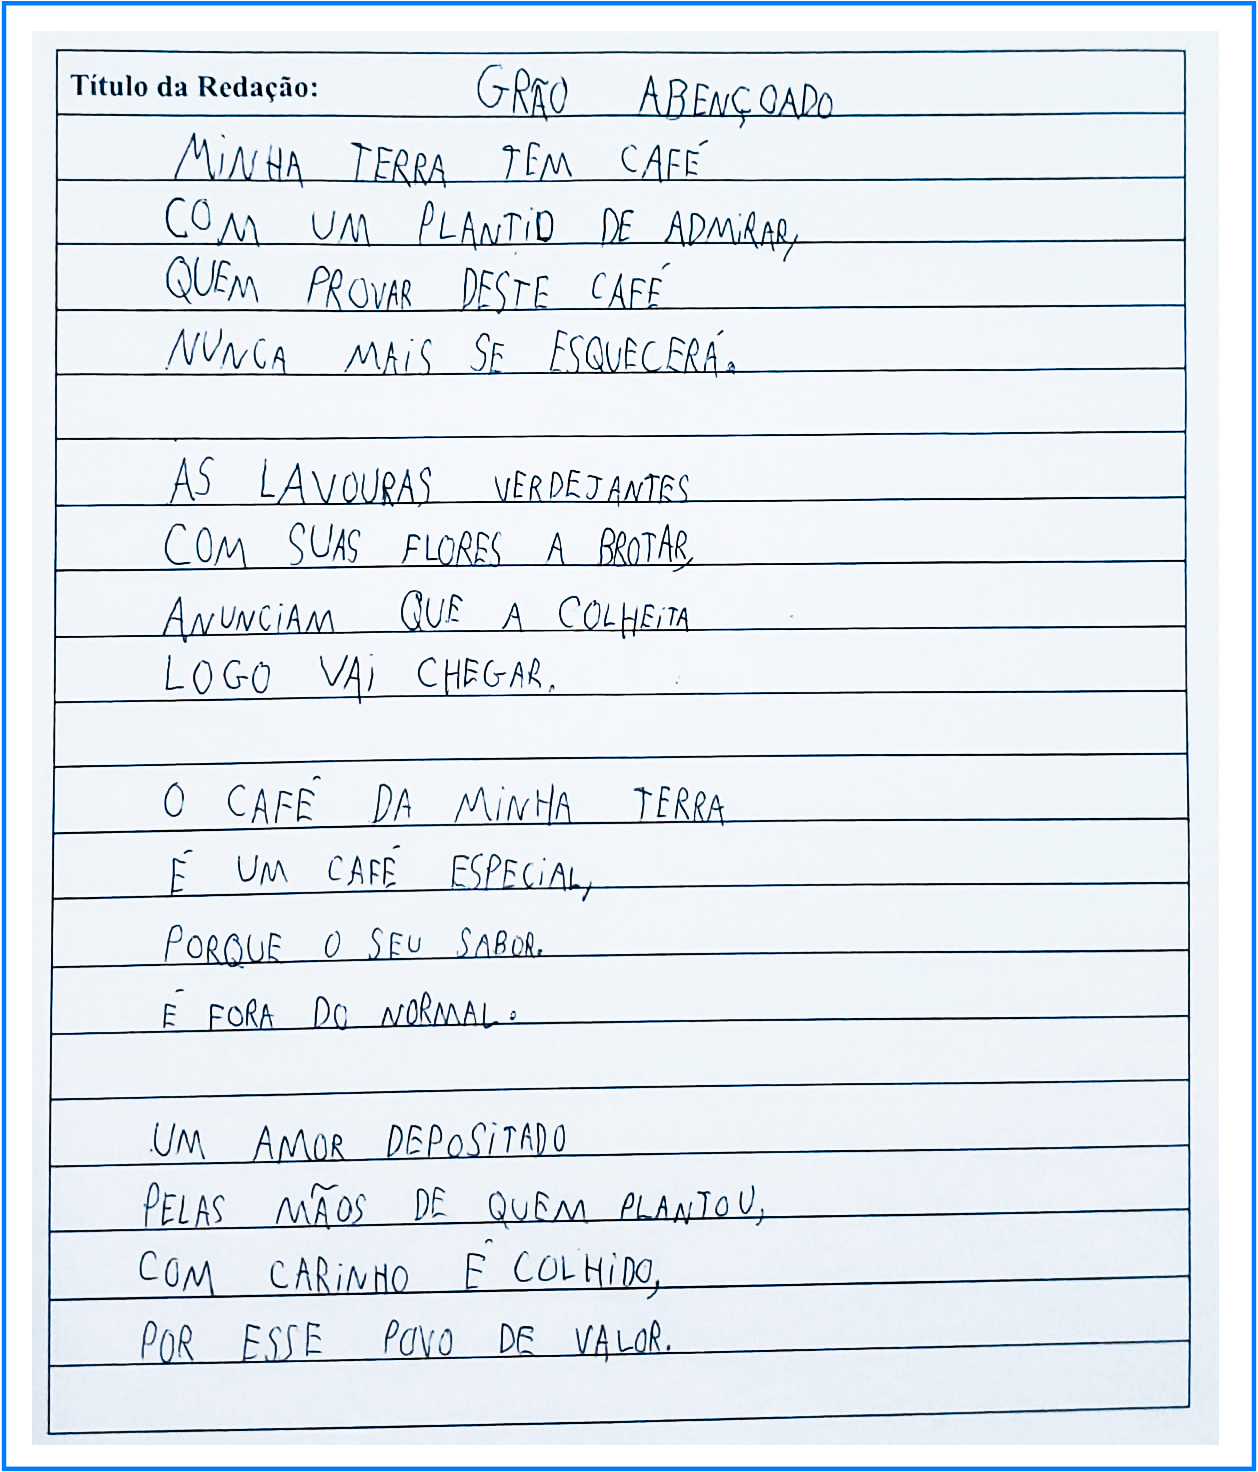 Título da Redação: GRÃO ABENÇOADO
MINHA TERRA TEM CAFÉ
COM UM PLANTIO DE ADMIRAR,
QUEM PROVAR DESTE CAFÉ
NUNCA MAIS SE ESQUECERÁ.
AS LAVOURAS VERDEJANTES
COM SUAS FLORES A BROTAR,
ANUNCIAM QUE A COLHEITA
LOGO VAI CHEGAR.
O CAFÉ DA MINHA TERRA
É UM CAFÉ ESPECIAL,
PORQUE O SEU SABOR.
É FORA DO NORMAL.
UM AMOR DEPOSITADO
PELAS MÃOS DE QUEM PLANTOU,
COM CARINHO É COLHIDO,
POR ESSE POVO DE VALOR.